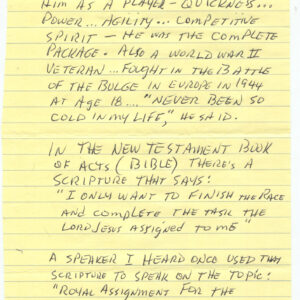 HIM AS A PLAYER - QUICKNESS...
POWER... AGILITY... COMPETITIVE
SPIRIT - HE WAS THE COMPLETE
PACKAGE. ALSO A WORLD WAR II
VETERAN... FOUGHT IN THE BATTLE
OF THE BULGE IN EUROPE IN 1944
AT AGE 18... "NEVER BEEN SO
COLD IN MY LIFE," HE SAID.
IN THE NEW TESTAMENT BOOK
OF ACTS (BIBLE) THERE'S A
SCRIPTURE THAT SAYS:
"I ONLY WANT TO FINISH THE RACE
AND COMPLETE THE TASK THE
LORD JESUS ASSIGNED TO ME"
A SPEAKER I HEARD ONCE USED THAT
SCRIPTURE TO SPEAK ON THE TOPIC:
"ROYAL ASSIGNMENT FOR THE